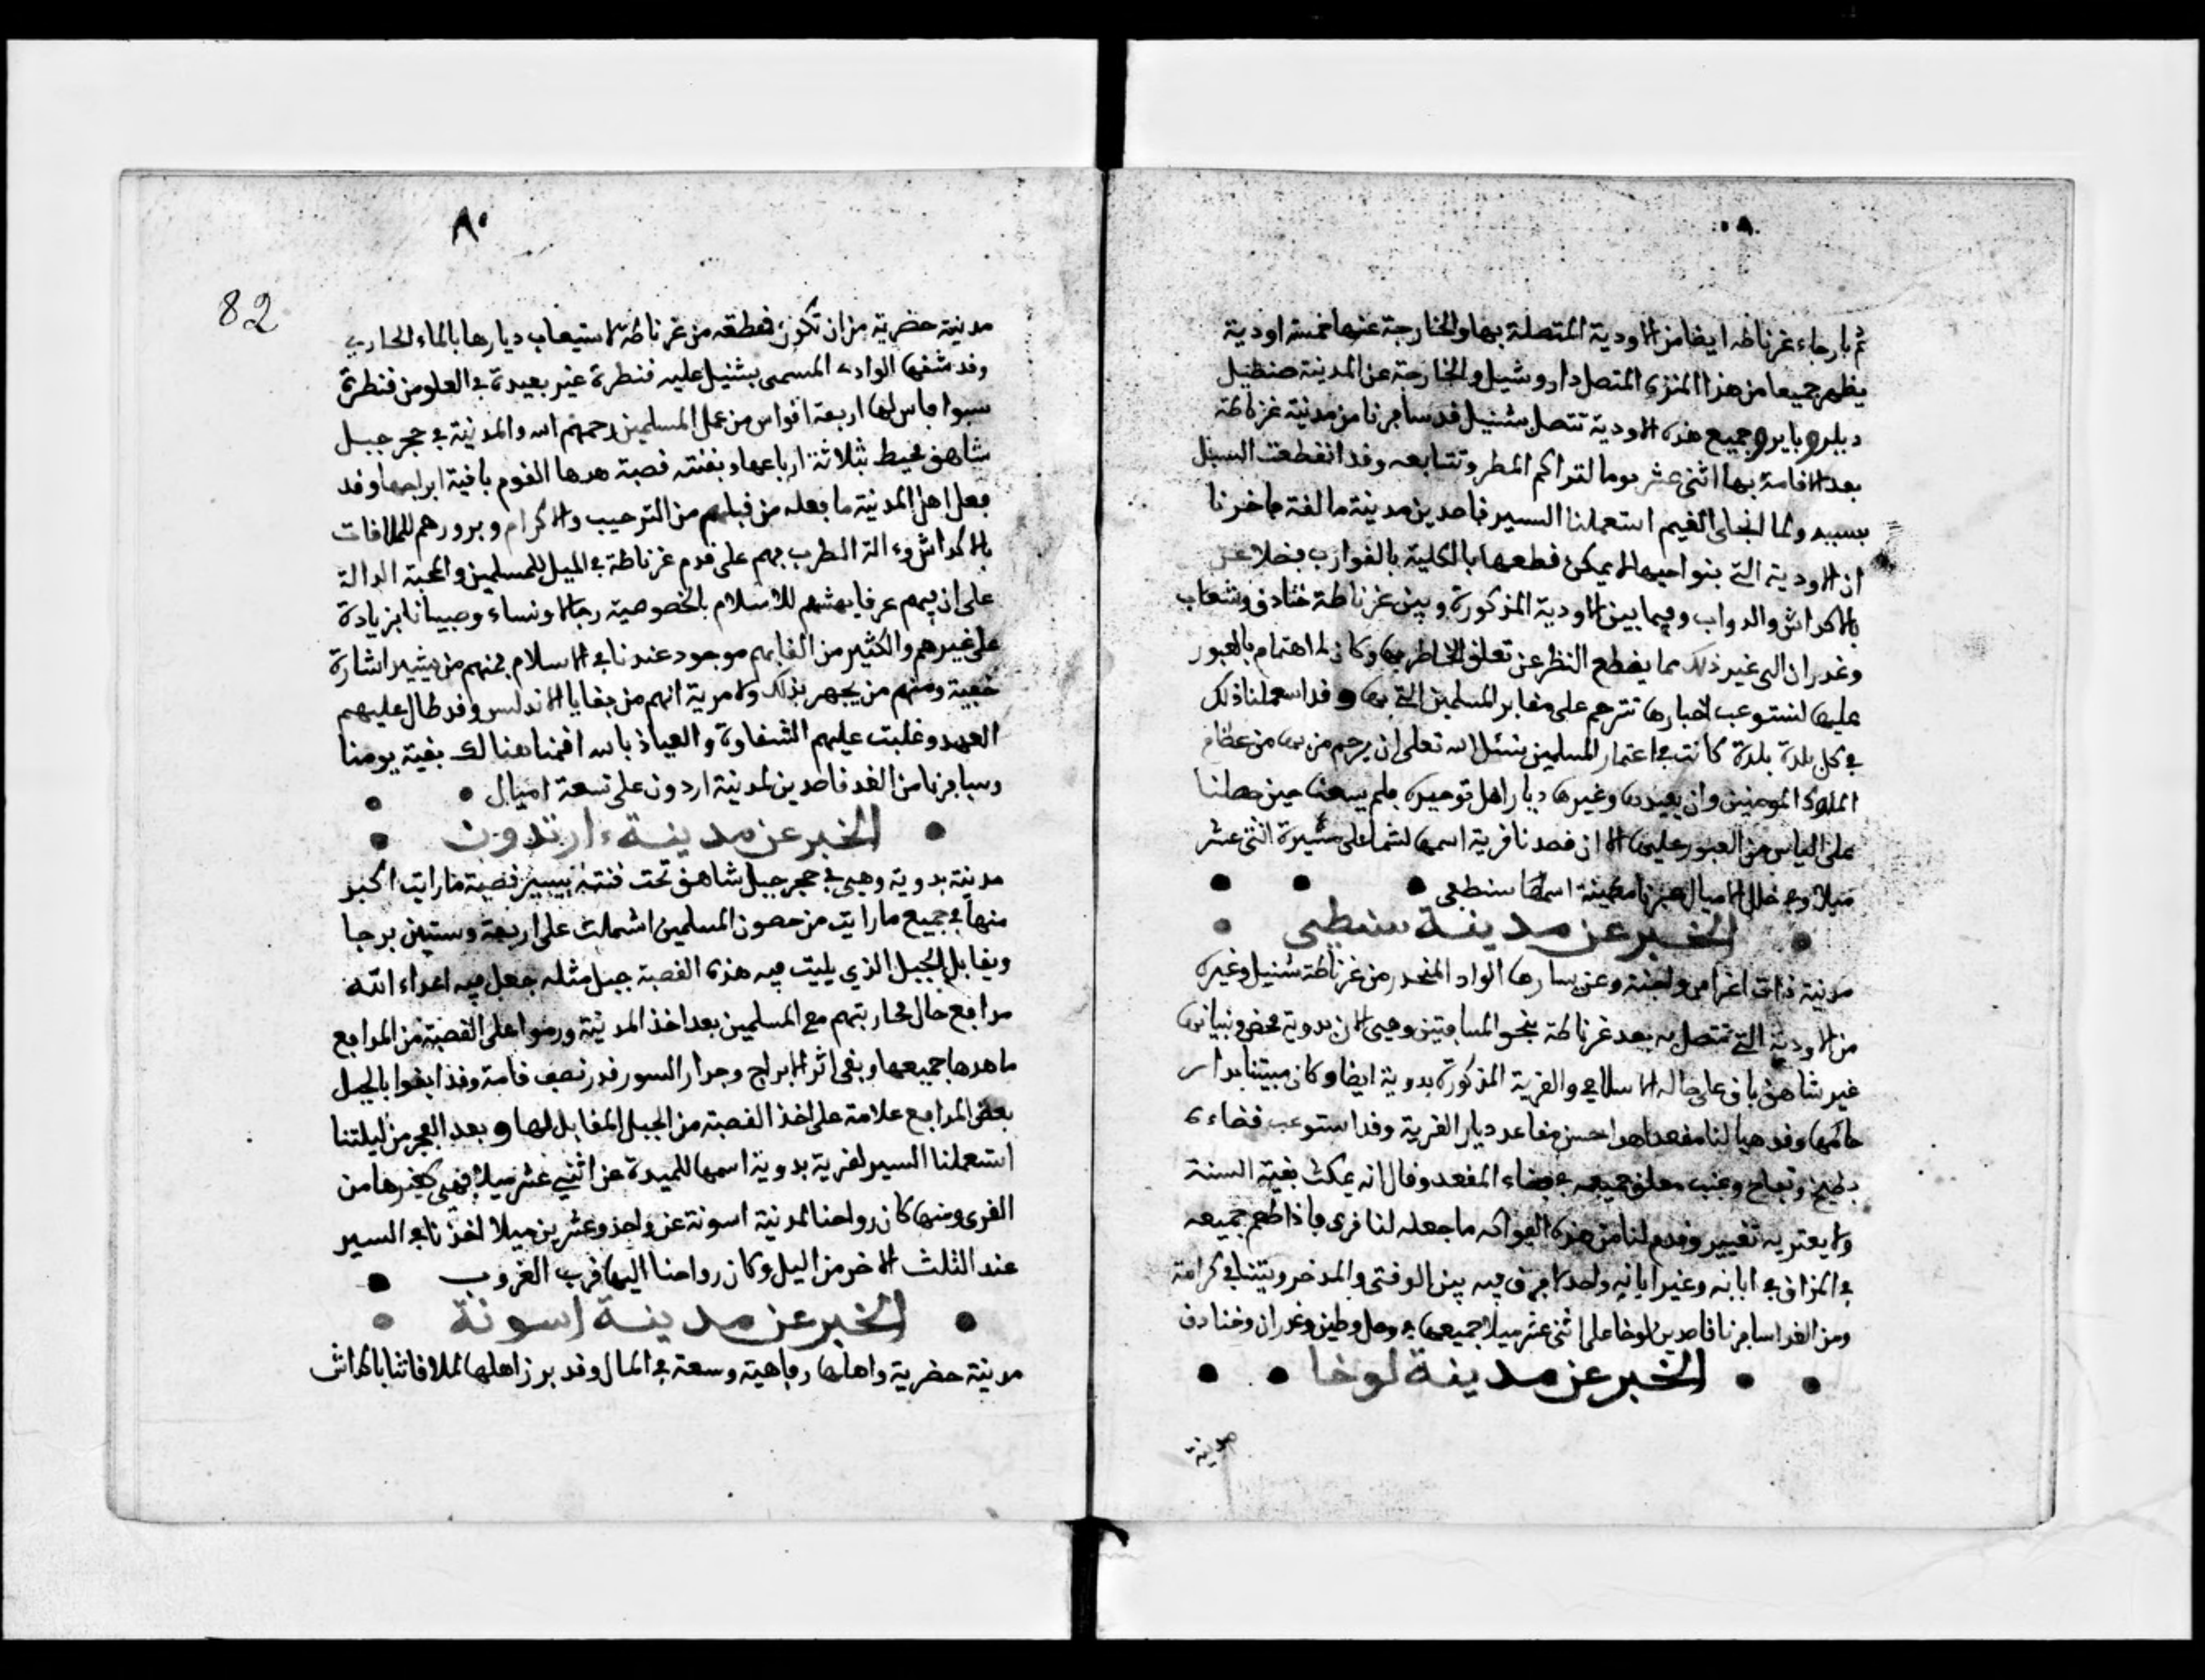 ثم بارجاء غرناطه ايضا من الاودية المتصلة بها والخارجة عنها خمسة اودية
يظهر جميعا من هذا المنزه المتصل داروشيل والخارجة عن المدينة منظيل
ديلرو بايرو وجميع هذه الاودية تتصل بشنيل قد سافرنا من مدينة غرناطة
بعد الاقامة بها اثنى عشر يوما لتراكم المطر وتتابعه وقد انقطعت السبل
بسببه ولما انجلى الغيم استعملنا السير قاصدين مدينة مالقة فاخبرنا
ان الاودية التي بنواحيها لا يمكن قطعها بالكلية بالقوارب فضلا عن
بالاكداش والدواب وفيما بين الاودية المذكورة وبين غرناطة خنادق وشعاب
وغدران الى غير ذلك مما يقطع النظر عن تعلق الخاطر بها وكان له اهتمام بالعبور
عليها لنستوعب اخبارها نترحم على مقابر المسلمين التي بها وقد استعملنا ذلك
في كل بلدة بلدة كانت في اعتمار المسلمين نسئل الله تعلى ان يرحم من بها من عظام
الملوك المومنين وان يعيدها وغيرها ديار اهل توحيده فلم يسعنا حين حصلنا
على الياس من العبور عليها الا ان قصدنا قرية اسمها لشما على مسيرة اثنى عشر
ميلا وفي خلال الاميال عبرنا مدينة اسمها سنطفي
الخبر عن مدينة سنطفي
مدينة ذات اغراس واجنة وعن يسارها الواد المنحدر من غرناطة شنيل وغيره
من الاودية التي تتصل به بعد غرناطة بنحو المسافتين وهي الان بدوية محض وبنيانها
غير شاهق باق على حاله الاسلامي والقرية المذكورة بدوية ايضا وكان مبيتنا بدار
حاكمها وقد هيا لنا مقعدا هو احسن مقاعد ديار القرية وقد استوعب فضاءه
بطيخ وتفاح وعنب معلق جميعه في فضاء المقعد وقال انه يمكث بقية السنة
ولا يعتريه تغيير وقدم لنا من هذه الفواكه ما جعله لنا قرى فاذا طعم جميعه
في المذاق في ابانه وغير ابانه واحد لا فرق فيه بين الوقتي والمدخر وبتنا في كرامة
ومن الغد سافرنا قاصدين لوخا على اثنى عشر ميلا جميعها في وحل وطين وغدران وخنادق
الخبر عن مدينة لوخا
مدينة
٨٥
82
مدينة حضرية من ان تكون قطعة من غرناطة لاستيعاب ديارها بالماء الجاري
وقد شقها الوادي المسمى بشنيل عليه قنطرة غير بعيدة في العلو من قنطرة
سبوا بفاس لها اربعة اقواس من عمل المسلمين رحمهم الله والمدينة في حجر جبل
شاهق محيط بثلاثة ارباعها وبقنته قصبة هدها القوم باقية ابراجها وقد
فعل اهل المدينة ما فعله من قبلهم من الترحيب والاكرام وبرورهم للملاقات
بالاكداش وءالة الطرب بهم على قدم غرناطة في الميل للمسلمين والمحبة الدالة
على ان فيهم عرقا يهشهم للاسلام بالخصوصية رجالا ونساء وصبيانا بزيادة
على غيرهم والكثير من القابهم موجود عندنا في الاسلام فمنهم من يشير اشارة
خفية ومنهم من يجهر بذلك ولا مرية انهم من بقايا الاندلس وقد طال عليهم
العهد وغلبت عليهم الشقاوة والعياذ بالله اقمنا هنالك بقية يومنا
وسافرنا من الغد قاصدين لمدينة اردون على تسعة اميال
الخبر عن مدينة ءارتدون
مدينة بدوية وهي في حجر جبل شاهق تحت قنته بيسير قصبة ما رايت اكبر
منها في جميع ما رايت من حصون المسلمين اشملت على اربعة وستين برجا
ويقابل الجبل الذي بنيت فيه هذه القصبة جبل مثله جعل فيه اعداء الله
مدافع حال محاربتهم مع المسلمين بعد اخذ المدينة ورموا على القصبة من المدافع
ما هدها جميعها وبقى اثر الابراج وجدار السور قدر نصف قامة وقد ابقوا بالجبل
بعض المدافع علامة على اخذ القصبة من الجبل المقابل لها وبعد الفجر من ليلتنا
استعملنا السير لقرية بدوية اسمها للميدة عن اثني عشر ميلا فهي كغيرها من
القرى ومنها كان رواحنا لمدينة اسونة عن واحد وعشرين ميلا اخذنا في السير
عند الثلث الاخر من اليل وكان رواحنا اليها قرب الغروب
الخبر عن مدينة اسونة
مدينة حضرية واهلها رفاهية وسعة في المال وقد برز اهلها لملاقاتنا بالاكداش